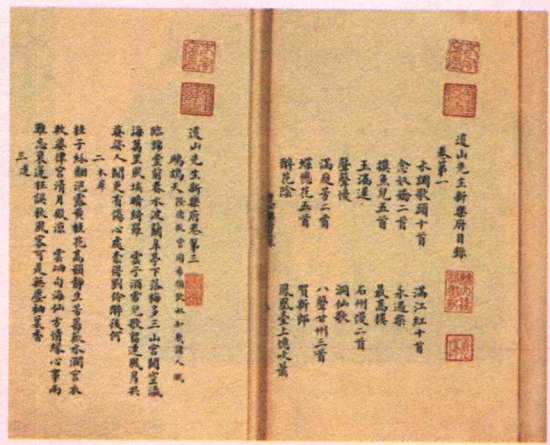 遺山先生新樂府目錄
卷第一
水調歌頭十首 滿江紅十首
念奴嬌二首 永遇樂
摸魚兒五首 最高樓
玉漏遲 石州慢二首
聲聲慢 洞仙歌
滿庭芳二首 八聲甘州二首
蝶戀花五首 賀新郎
醉花陰 鳳凰臺上憶吹簫
遺山先生新樂府卷第三
鷓鴣天 隆德故宮同希顏欽叔知幾諸人賦
臨錦堂前春水波蘭皋亭下落梅多三山宮闕空瀛
海萬里風埃暗綺羅 雲子酒雪兒歌留連風月共
婆娑人間更有傷心處奈得劉伶醉後何
二 木犀
桂子紛翻浥露黃桂花高韻靜年芳薔薇水潤宮衣
軟婆律膏清月殿涼 雲岫句海仙方情緣心事兩
難忘衰蓮枉誤秋風客可是無塵袖裏香
三 蓮